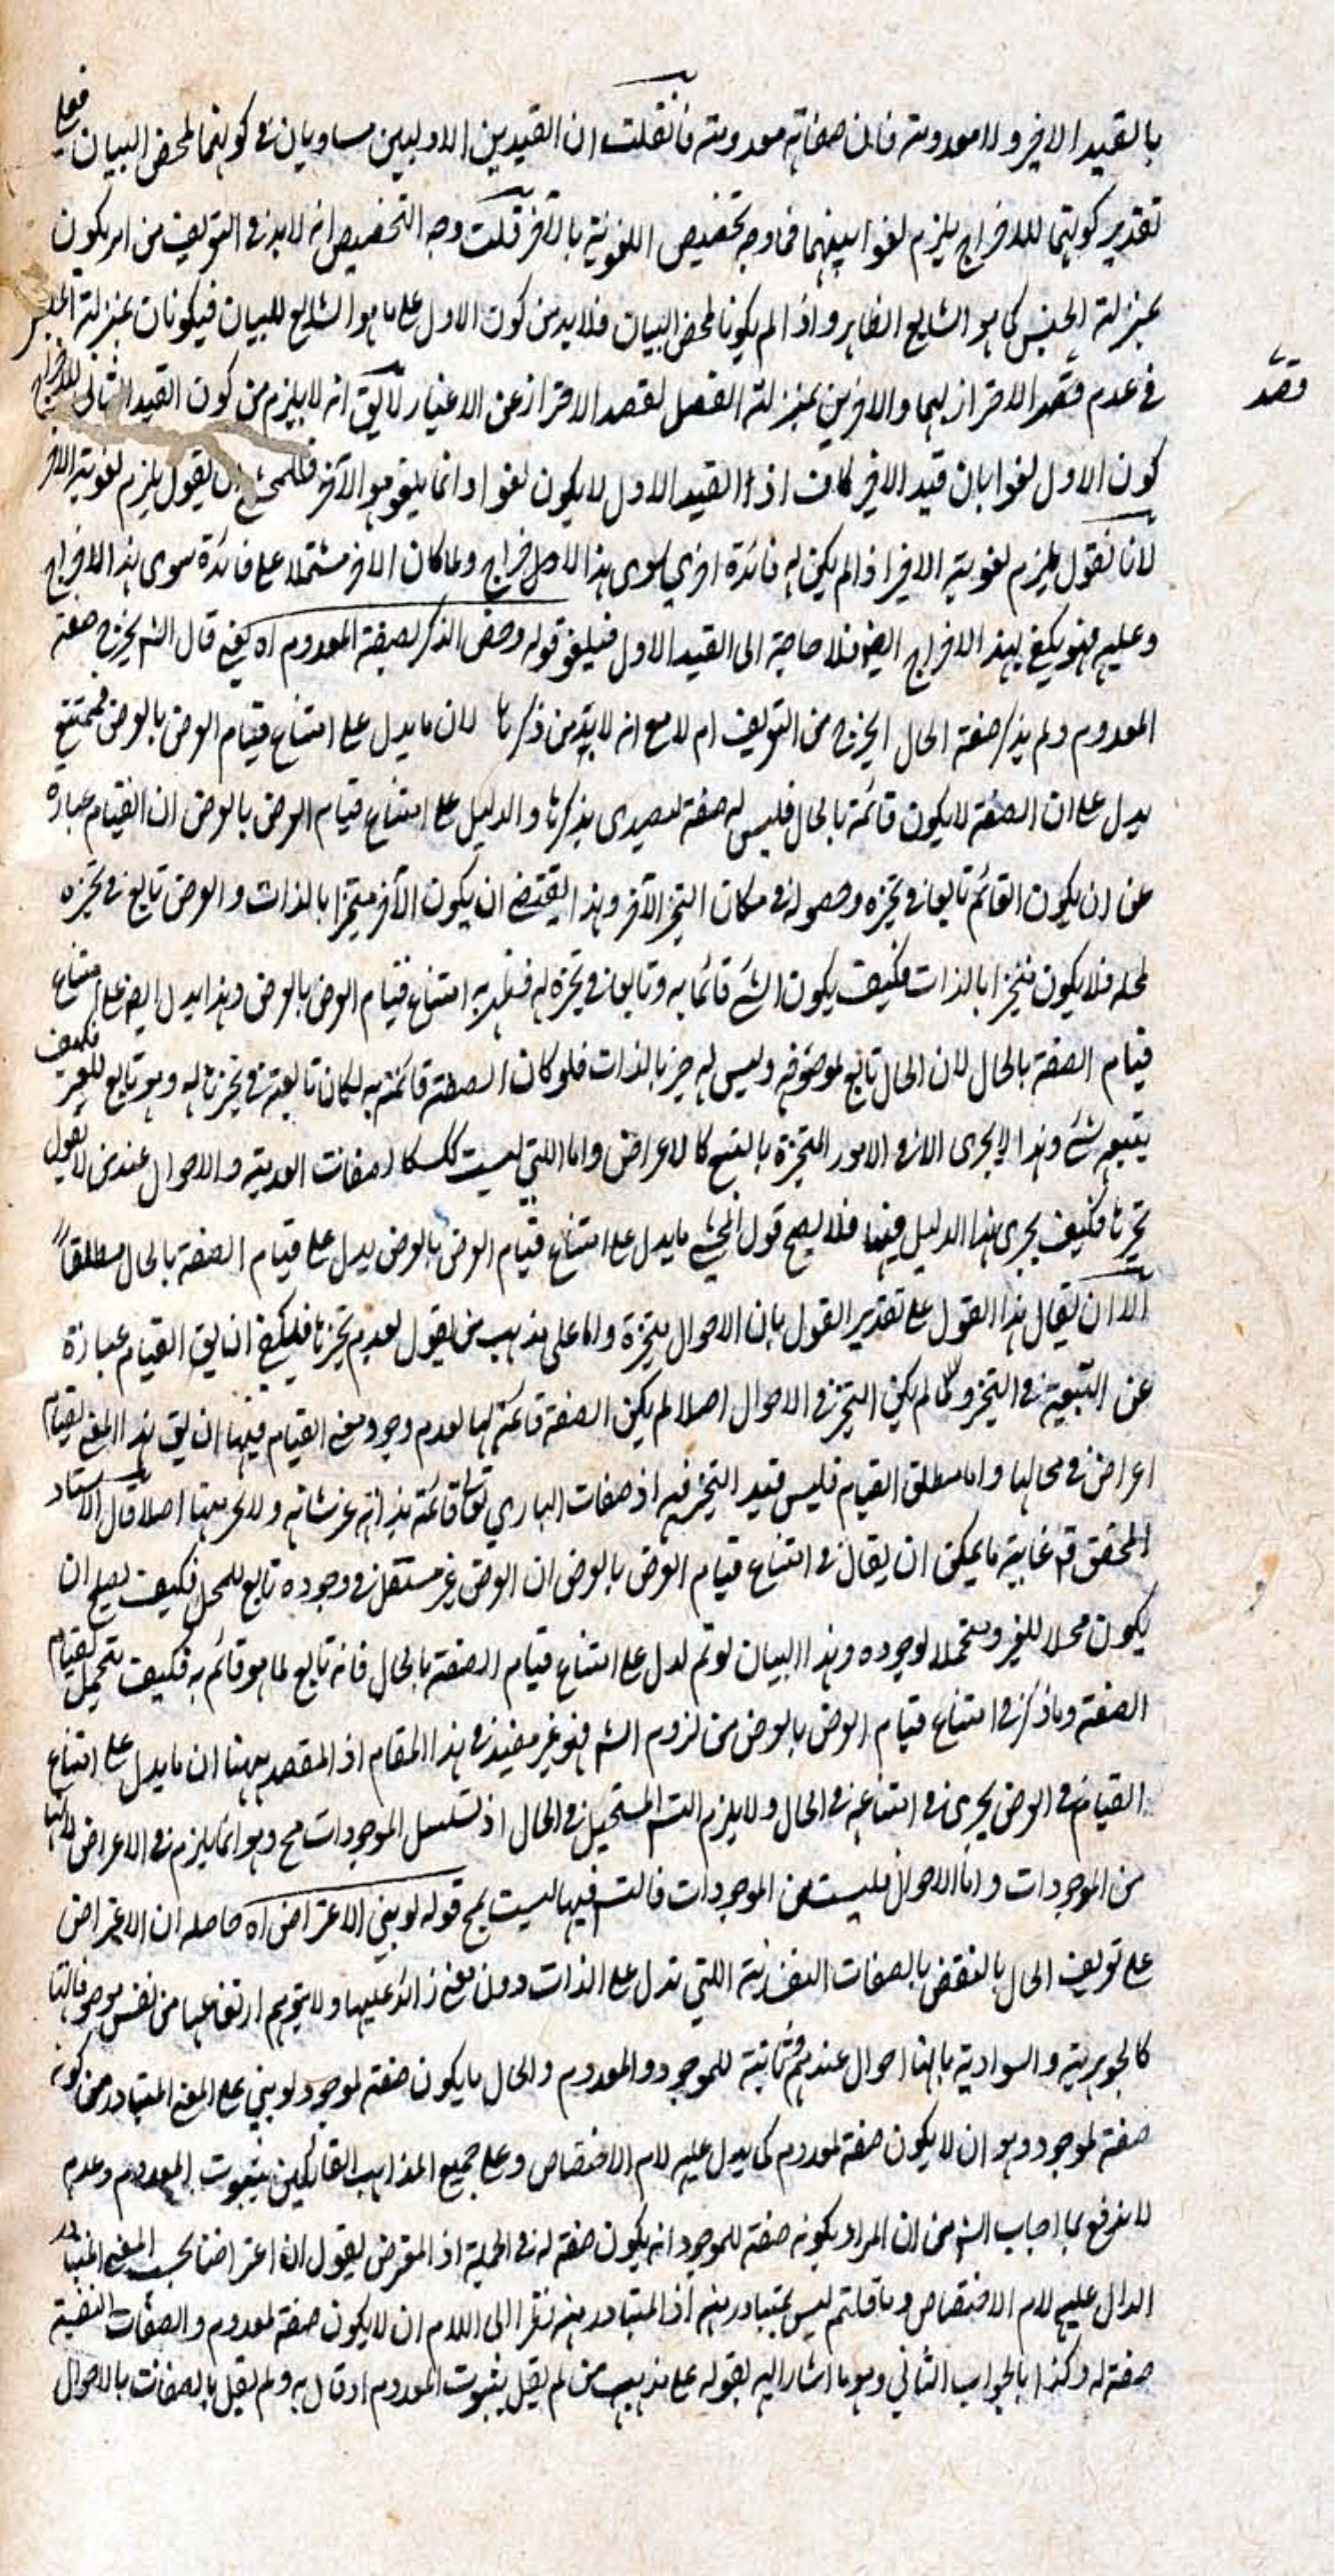 بالقيد الاخير ولا معدومة فان صفاته معدومة فانقلت ان القيدين الاوليين مساويان في كونهما لمحض البيان فعلى
تقدير كونهما للاخراج يلزم لغوا بينهما فما وجه تخصيص اللغوية بالآخر قلت وجه التخصيص انه لابد في التعريف من امر يكون
بمنزلة الجنس كما هو الشايع الظاهر واذا لم يكونا لمحض البيان فلابد من كون الاول على ما هو الشايع للبيان فيكونان بمنزلة الجنس
في عدم قصد الاحتراز بهما والاخرين بمنزلة الفصل لقصد الاحتراز عن الاغيار لايق انه لايلزم من كون القيد الثاني للاخراج
قصد
كون الاول لغوا بان قيد الاخير كاف اذ القيد الاول لايكون لغوا وانما يلغو هو الآخر فللمحشي ان يقول يلزم لغوية الاخر
لانا نقول يلزم لغوية الاخير اذا لم يكن له فائدة اخرى سوى هذا الاخراج ولما كان الاخر مشتملا على فائدة سوى هذا الاخراج
وعليه فهو يكفي لهذا الاخراج ايضا فلا حاجة الى القيد الاول فيلغو قوله وخص الذكر لصفة المعدوم اه يعني قال الشم يخرج صفة
المعدوم ولم يذكر صفة الحال ايخرج من التعريف ام لا مع انه لابد من ذكرها لان ما يدل على امتناع قيام العرض بالعرض فيمتنع
يدل على ان الصفة لايكون قائمة بالحال فليس له صفة ليصدى بذكرها والدليل على امتناع قيام العرض بالعرض ان القيام عبارة
عن ان يكون القائم تابعا في تحيزه وحصوله في مكان التحيز الآخر وهذا يقتضي ان يكون الآخر متحيزا بالذات والعرض تابع في تحيزه
لمحله فلا يكون متحيزا بالذات فكيف يكون الشئ قائما به وتابعا في تحيزه له فظهر به امتناع قيام العرض بالعرض وهذا يدل ايضا على امتناع
قيام الصفة بالحال لان الحال تابع لموصوفه وليس له حيز بالذات فلو كان الصفة قائمة به لكان تابعة في تحيزها له وهو تابع للغير فكيف
يتبعه شئ وهذا لايجرى الا في الامور المتحيزة بالتبع كالاعراض واما التي ليست كك كالصفات العدمية والاحوال عند من لايقول
تحيزها فكيف يجرى هذا الدليل فيها فلا يصح قول المحشي ما يدل على امتناع قيام العرض بالعرض يدل على قيام الصفة بالحال مطلقا
الا ان يقال هذا القول على تقدير القول بان الاحوال متحيزة واما على مذهب من يقول بعدم تحيزها فليكف ان يق القيام عبارة
عن التبعية في التحيز ولما لم يكن التحيز في الاحوال اصلا لم يكن الصفة قائمة لها لعدم وجود معنى القيام فيها ان يق هذا المعنى لقيام
اعراض في محالها واما مطلق القيام فليس قيد التحيز فيه اذ صفات الباري تعالى قائمة بذاته عز شانه ولا تحيز ههنا اصلا قال الاستاد
المحقق قه غاية ما يمكن ان يقال في امتناع قيام العرض بالعرض ان العرض غير مستقل في وجوده تابع للمحل فكيف يصلح ان
يكون محلا للغير ومتحملا لوجوده وهذا البيان لو تم لدل على امتناع قيام الصفة بالحال فانه تابع لما هو قائم به فكيف يتحمل لقيام
الصفة وما ذكر في امتناع قيام العرض بالعرض من لزوم التس فهو غير مفيد في هذا المقام اذ المقصد ههنا ان ما يدل على امتناع
القيام في العرض يجرى في امتناعه في الحال ولا يلزم التس المستحيل في الحال اذ تسلسل الموجودات مح وهو انما يلزم في الاعراض لانها
من الموجودات واما الاحوال فليست من الموجودات فالتس فيها ليست بمح قوله لو بنى الاعتراض اه حاصله ان الاعتراض
على تعريف الحال بالنقض بالصفات النفسية التي تدل على الذات دون معنى زائد عليها ولا يتوهم ارتفاعها من نفس موصوفاتها
كالجوهرية والسوادية بانها احوال عندهم وثابتة للموجود والمعدوم والحال ما يكون صفة لموجود لو بنى على المعنى المتبادر من كونه
صفة لموجود وهو ان لا يكون صفة لمعدوم كما يدل عليه لام الاختصاص وعلى جميع المذاهب القائلين بثبوت المعدوم وعدم
لا يندفع بما اجاب الش من ان المراد بكونه صفة للموجود انه يكون صفة له في الجملة اذ المعترض يقول ان اعتراضنا بحسب المعنى المتبادر
الدال عليه لام الاختصاص وما قلتم ليس بمتبادر منه اذ المتبادر منه نظرا الى اللام ان لايكون صفة لمعدوم والصفات النفسية
صفة له وكذا بالجواب الثاني وهو ما اشار اليه بقوله على مذهب من لم يقل بثبوت المعدوم او قال به ولم يقل بالصفات بالاحوال